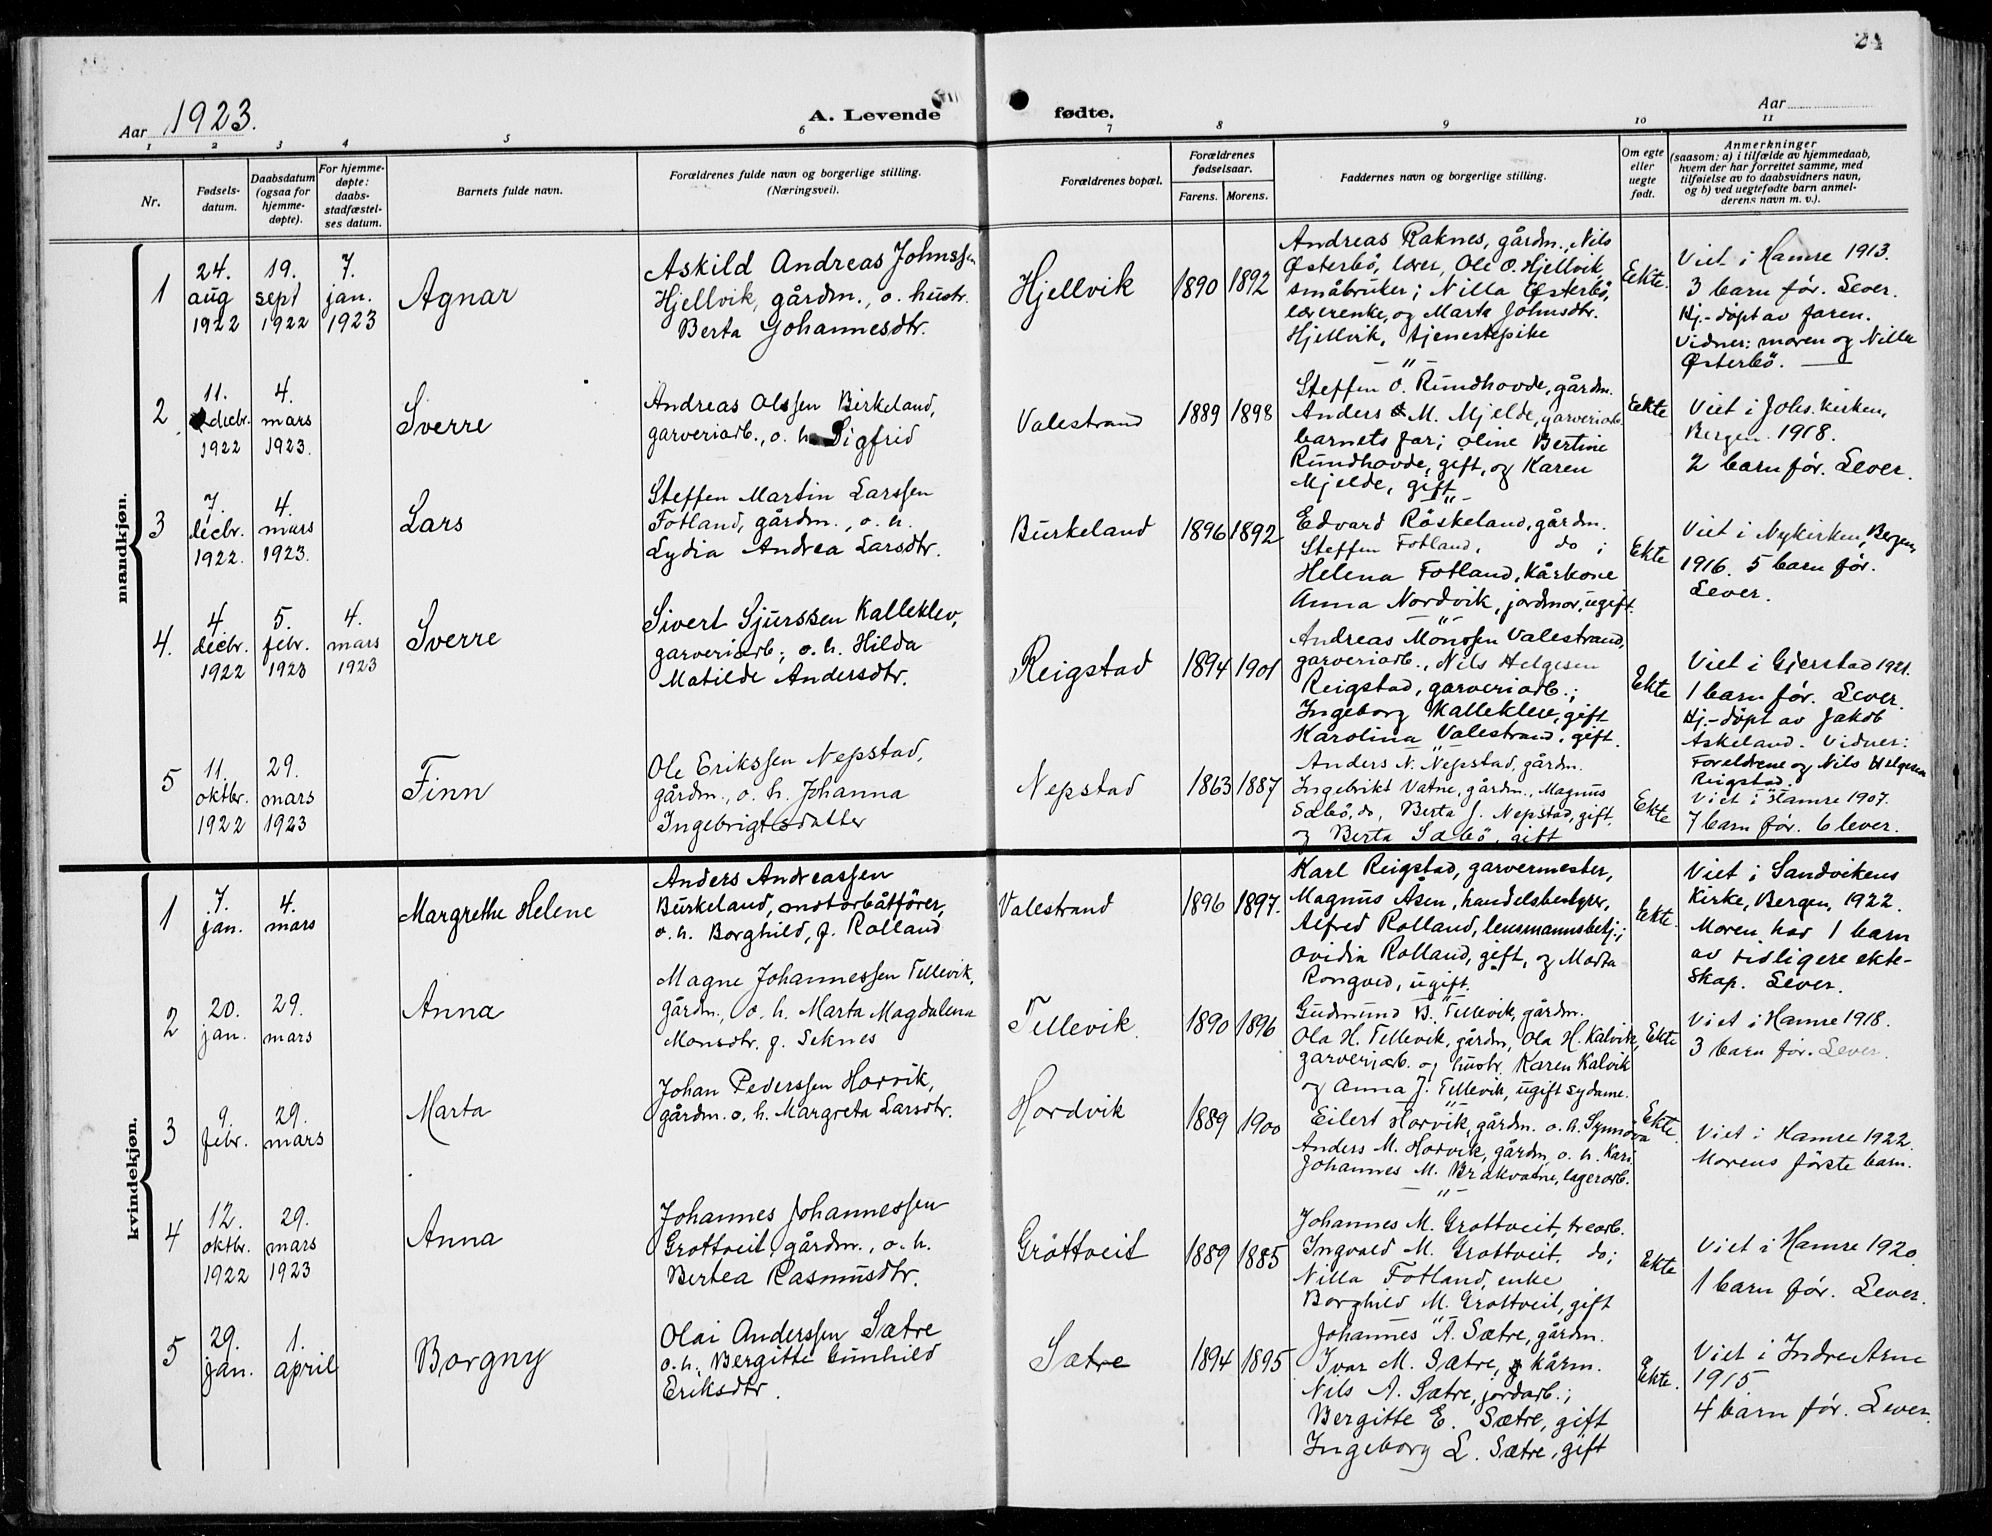 24
Aar 1923.
A. Levende fødte.
Aar
1 2 3 4 5 6 7 8 9 10 11
Nr.
Fødsels-
datum.
Daabsdatum
(ogsaa for
hjemme-
døpte).
For hjemme-
døpte:
daabs-
stadfæstel-
ses datum.
Barnets fulde navn.
Forældrenes fulde navn og borgerlige stilling.
(Næringsvei).
Forældrenes bopæl.
Forældrenes
fødselsaar.
Farens. Morens.
Faddernes navn og borgerlige stilling.
Om egte
eller
uegte
født.
Anmerkninger
(saasom: a) i tilfælde av hjemmedaab,
hvem der har forrettet samme, med
tilføielse av to daabsvidners navn,
og b) ved uegtefødte barn anmel-
derens navn m. v.).
mandkjøn.
1
24.
aug
1922
19.
sept
1922
7.
jan.
1923
Agnar
Askild Andreas Johnssen
Hjellvik, gårdm., o. hustr.
Berta Johannesdtr.
Hjellvik
1890 1892
Andreas Raknes, gårdm., Nils
Østerbö, lærer, Ole O. Hjellvik,
småbruker; Nilla Østerbö,
lærerenke, og Marta Johnsdtr.
Hjellvik, tjenestepike
Ekte.
Viet i Hamre 1913.
3 barn før. Lever.
Hj.-døpt av faren.
Vidner: moren og Nilla
Østerbö.
2
11.
decbr.
1922
4.
mars
1923.
Sverre
Andreas Olssen Birkeland,
garveriarb., o. h. Sigfrid
Valestrand
1889 1898
— " —
Steffen O. Rundhovde, gårdm.
Anders M. Mjelde, garveriarb.
barnets far; Oline Bertine
Rundhovde, gift, og Karen
Mjelde, gift
Ekte
Viet i Johs. kirken,
Bergen. 1918.
2 barn før. Lever.
3
7.
decbr.
1922.
4.
mars
1923.
Lars
Steffen Martin Larssen
Fotland, gårdm., o. h.
Lydia Andrea Larsdtr.
Burkeland
1896 1892
— " —
Edvard Röskeland, gårdm.
Steffen Fotland, do;
Helena Fotland, kårkone
Anna Nordvik, jordmor, ugift.
Ekte
Viet i Nykirken, Bergen,
1916. 5 barn før.
Lever.
4.
4.
decbr.
1922
5.
febr.
1923
4.
mars
1923
Sverre
Sivert Sjurssen Kalleklev,
garveriarb; o. h. Hilda
Matilde Andersdtr.
Reigstad
1894 1901
— " —
Andreas Monssen Valestrand,
garveriarb., Nils Helgesen
Reigstad, garveriarb.;
Ingeborg Kalleklev, gift
Karolina Valestrand, gift.
Ekte
Viet i Gjerstad 1921.
1 barn før. Lever.
Hj.-døpt av Jakob
Askeland. Vidner:
Foreldrene og Nils Helgesen
Reigstad.
5
11.
oktbr.
1922
29.
mars
1923
Finn
Ole Erikssen Nepstad,
gårdm., o. h. Johanna
Ingebrigtsdatter
Nepstad
1863 1887
— " —
Anders N. Nepstad, gårdm.
Ingebrikt Vatne, gårdm., Magnus
Sæbö, do, Berta J. Nepstad, gift.
og Berta Sæbö, gift
Ekte
Viet i Hamre 1907.
7 barn før. 6 lever.
kvindekjøn.
1
7.
jan.
4.
mars
Margrethe Helene
Anders Andreassen
Burkeland, motorbåtfører,
o. h. Borghild, f. Rolland
Valestrand
1896 1897.
Karl Reigstad, garvermester,
Magnus Åsen, handelsbestyrer,
Alfred Rolland, lensmannsbetj.;
Ovidia Rolland, gift, og Marta
Rongved, ugift.
Ekte.
Viet i Sandvikens
Kirke, Bergen, 1922.
Moren har 1 barn
av tidligere ekte-
skap. Lever.
2
20.
jan.
29.
mars
Anna
Magne Johannessen Tellevik,
gårdm., o. h. Marta Magdalena
Monsdtr. f. Seknes
Tellevik.
1890 1896
— " —
Gudmund B. Tellevik, gårdm.
Ola H. Tellevik, gårdm, Ola H. Kalvik,
garveriarb. og hustr. Karen Kalvik
og Anna J. Tellevik, ugift sydame.
Ekte
Viet i Hamre 1918.
3 barn før. Lever.
3
9.
febr.
29.
mars
Marta
Johan Pederssen Horvik,
gårdm. o. h. Margreta Larsdtr.
Hordvik
1889 1900
— " —
Eilert Horvik, gårdm. o. h. Synnöva
Anders M. Horvik, gårdm, o. h. Kari
Johannes M. Brakvatne, lagerarb.
Ekte.
Viet i Hamre 1922.
Morens første barn.
4
12.
oktbr.
1922
29.
mars
1923
Anna
Johannes Johannessen
Grottveit, gårdm., o. h.
Bertea Rasmusdtr.
Gröttveit
1889 1885
— " —
Johannes M. Grottveit, trearb.
Ingvald M. Grottveit. do;
Nilla Fotland, enke
Borghild M. Grottveit, gift
Ekte
Viet i Hamre 1920.
1 barn før. Lever.
5
29.
jan.
1.
april
Borgny
Olai Anderssen Sætre
o. h. Bergitte Gunhild
Eriksdtr.
Sætre
1894 1895
— " —
Johannes A. Sætre, gårdm.
Ivar M. Sætre, kårm.
Nils A. Sætre, jordarb.;
Bergitte E. Sætre, gift
Ingeborg L. Sætre, gift
Ekte.
Viet i Indre Arne
1915.
4 barn før. Lever.